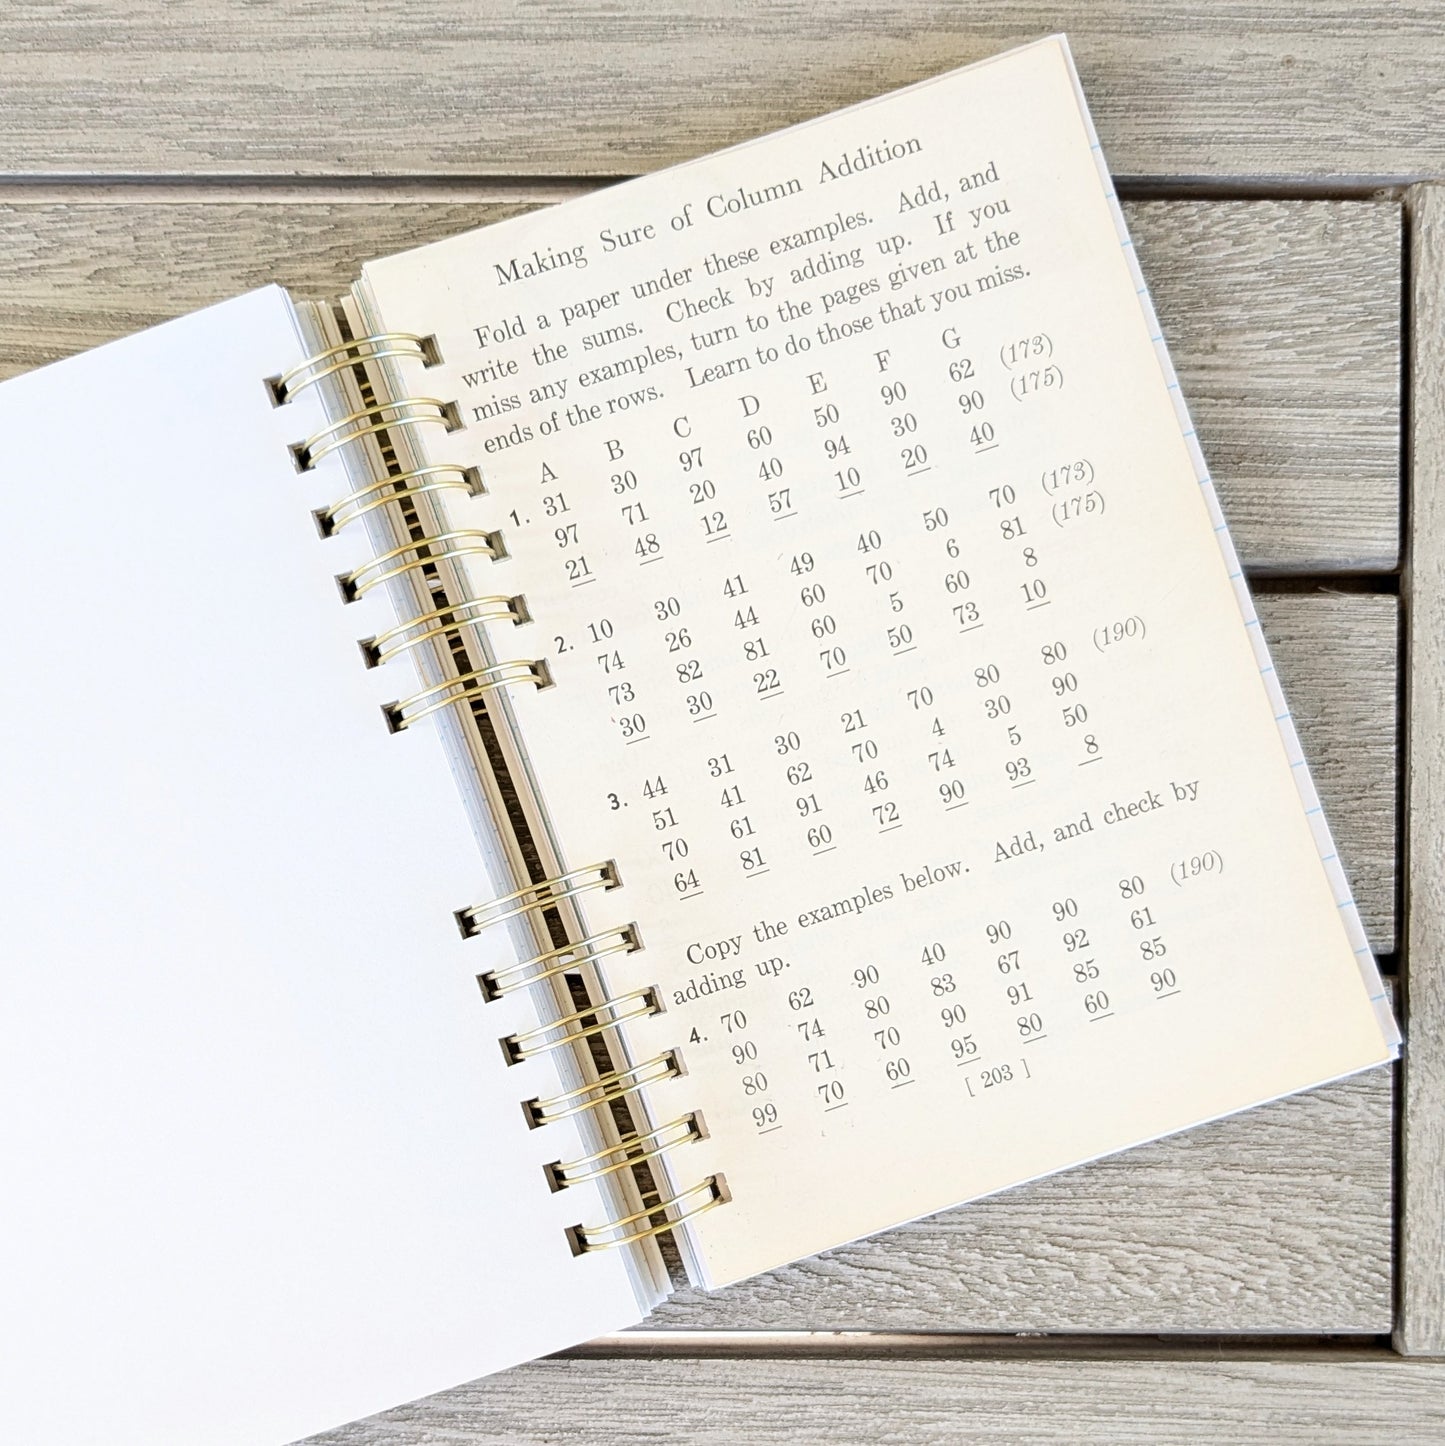 Making Sure of Column Addition
Fold a paper under these examples. Add, and
write the sums. Check by adding up. If you
miss any examples, turn to the pages given at the
ends of the rows. Learn to do those that you miss.
A B C D E F G
1. 31 30 97 60 50 90 62 (173)
97 71 20 40 94 30 90 (175)
21 48 12 57 10 20 40
2. 10 30 41 49 40 50 70 (173)
74 26 44 60 70 6 81 (175)
73 82 81 60 5 60 8
30 30 22 70 50 73 10
3. 44 31 30 21 70 80 80 (190)
51 41 62 70 4 30 90
70 61 91 46 74 5 50
64 81 60 72 90 93 8
Copy the examples below. Add, and check by
adding up.
4. 70 62 90 40 90 90 80 (190)
90 74 80 83 67 92 61
80 71 70 90 91 85 85
99 70 60 95 80 60 90
[ 203 ]